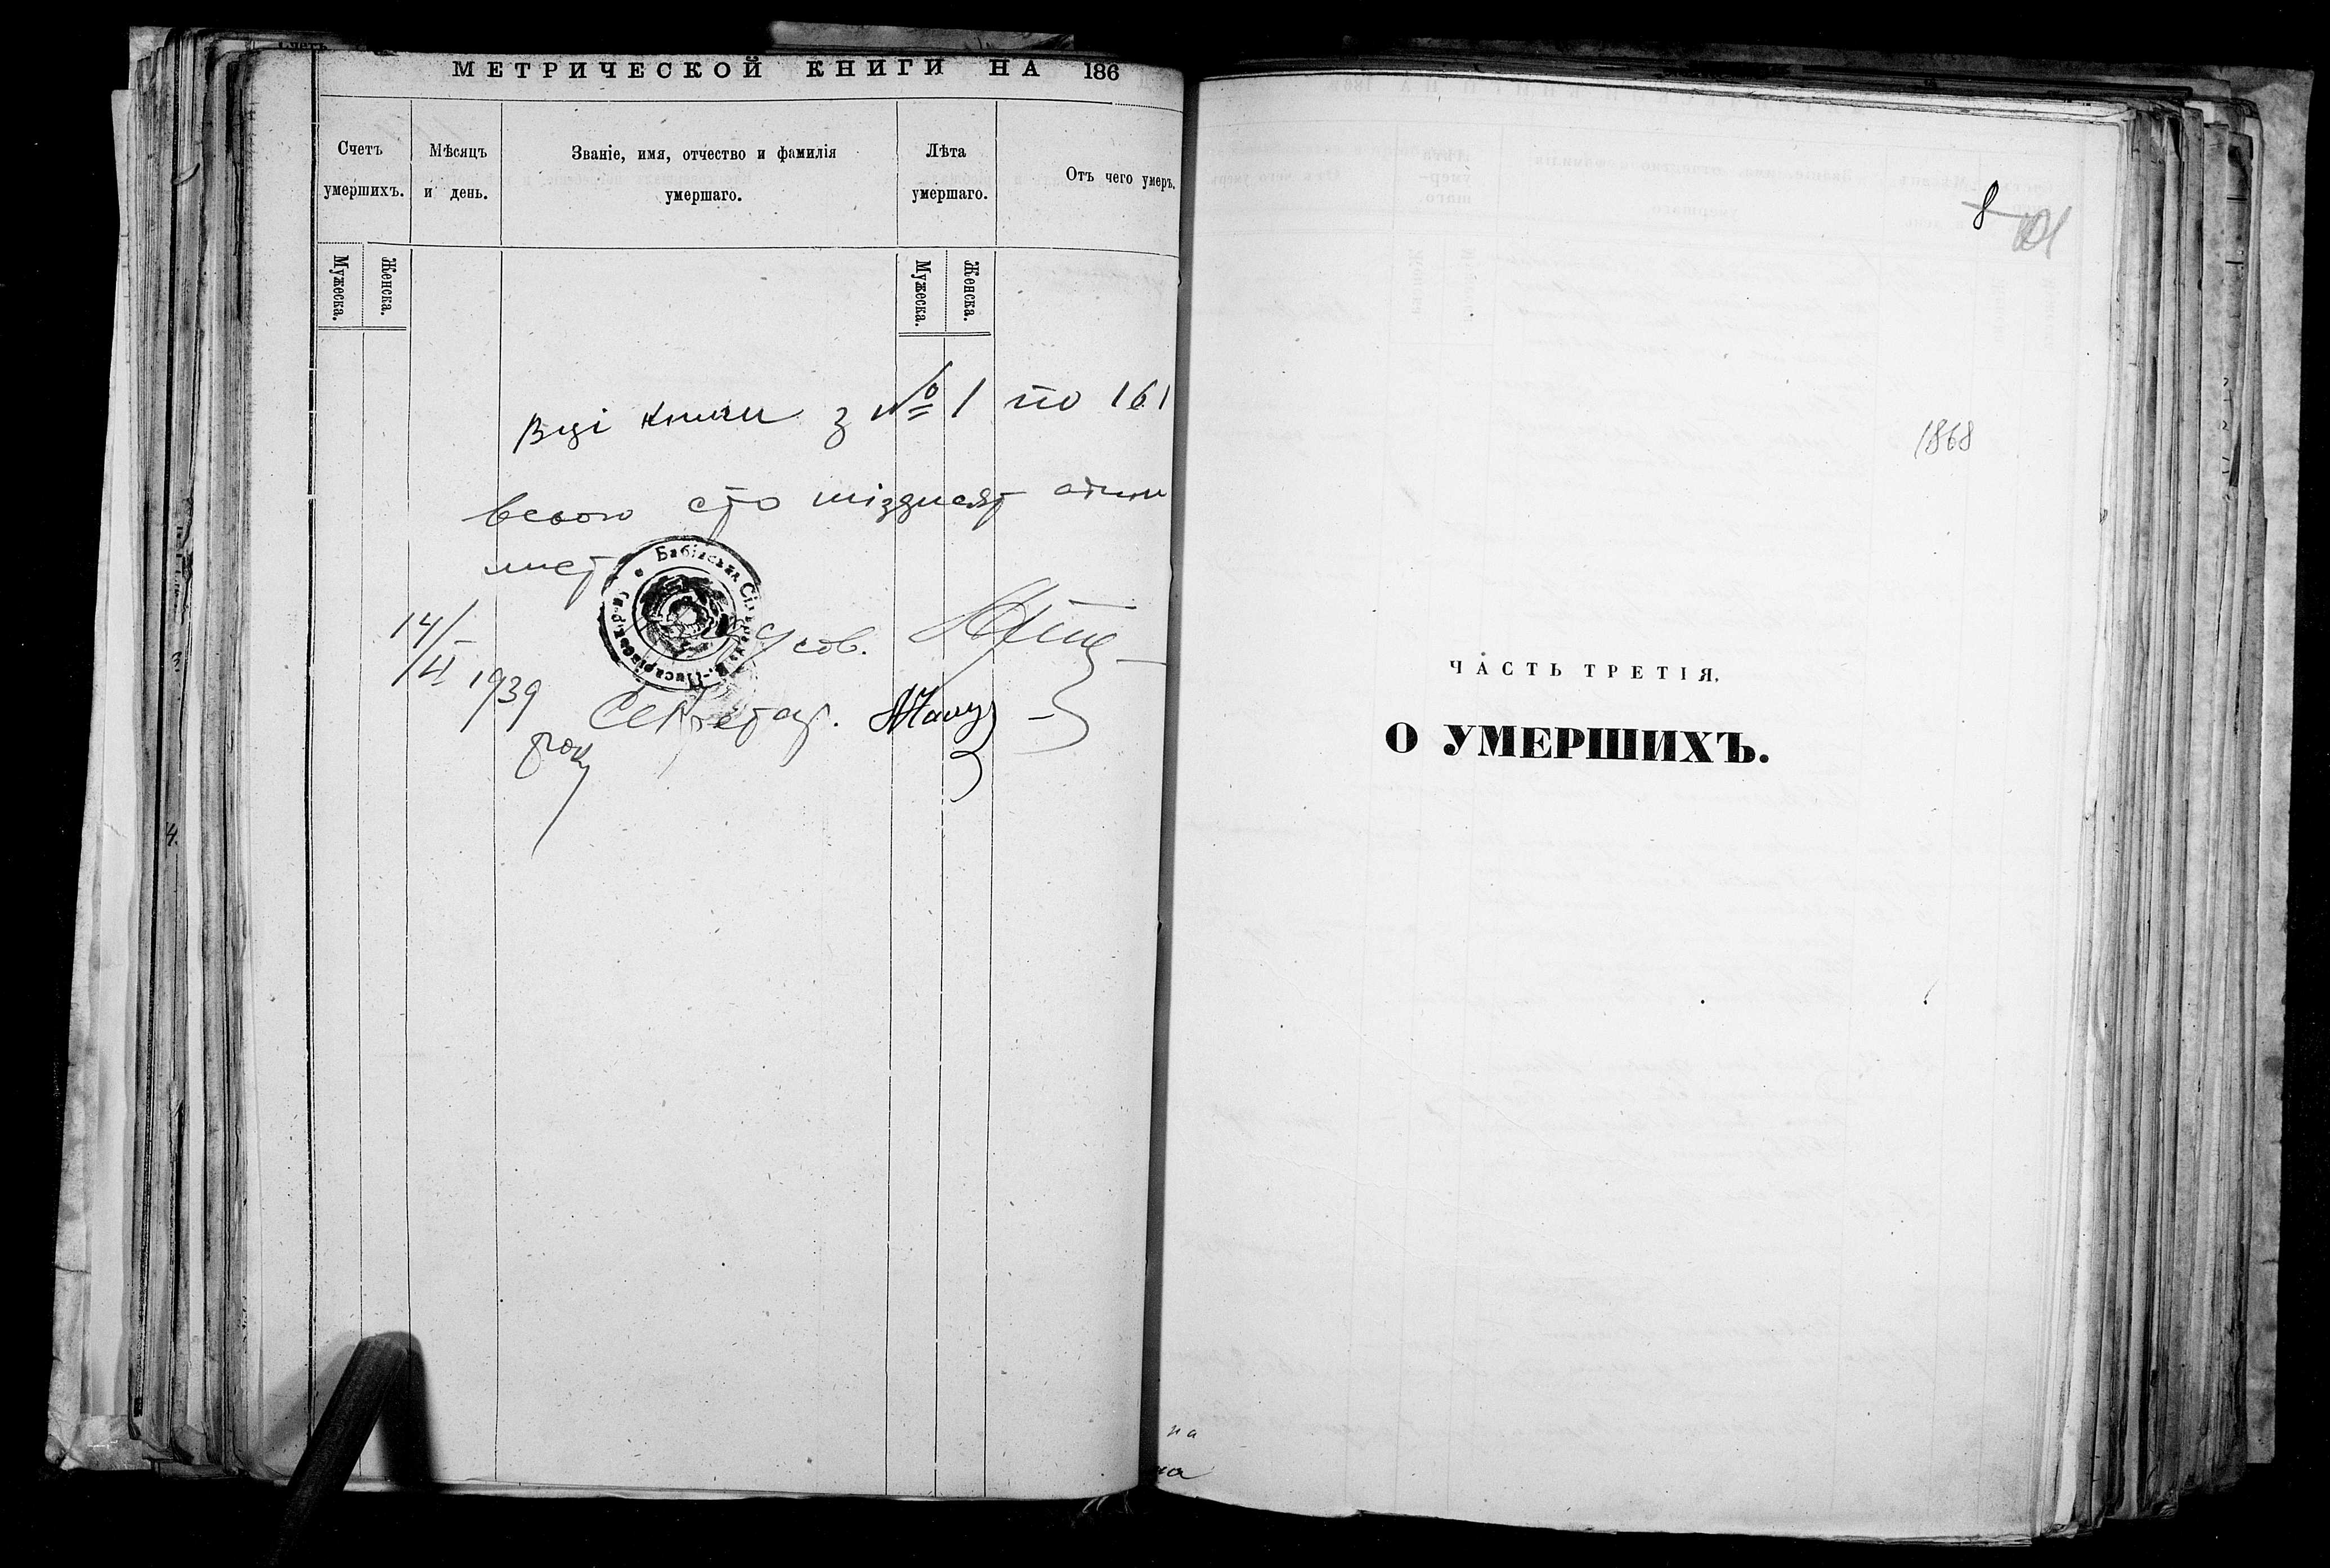 МЕТРИЧЕСКОЙ КНИГИ НА 186
Счетъ умершихъ.
Мѣсяцъ и день.
Званіе, имя, отчество и фамилія умершаго.
Лѣта умершаго.
Отъ чего умеръ.
Мужеска.
Женска.
Мужеска.
Женска.
книги з № 1 по 161
всього сто шіздисят
лист
сов.
14/II 1939 року
Секретар.
8
1868
ЧАСТЬ ТРЕТІЯ.
О УМЕРШИХЪ.
на